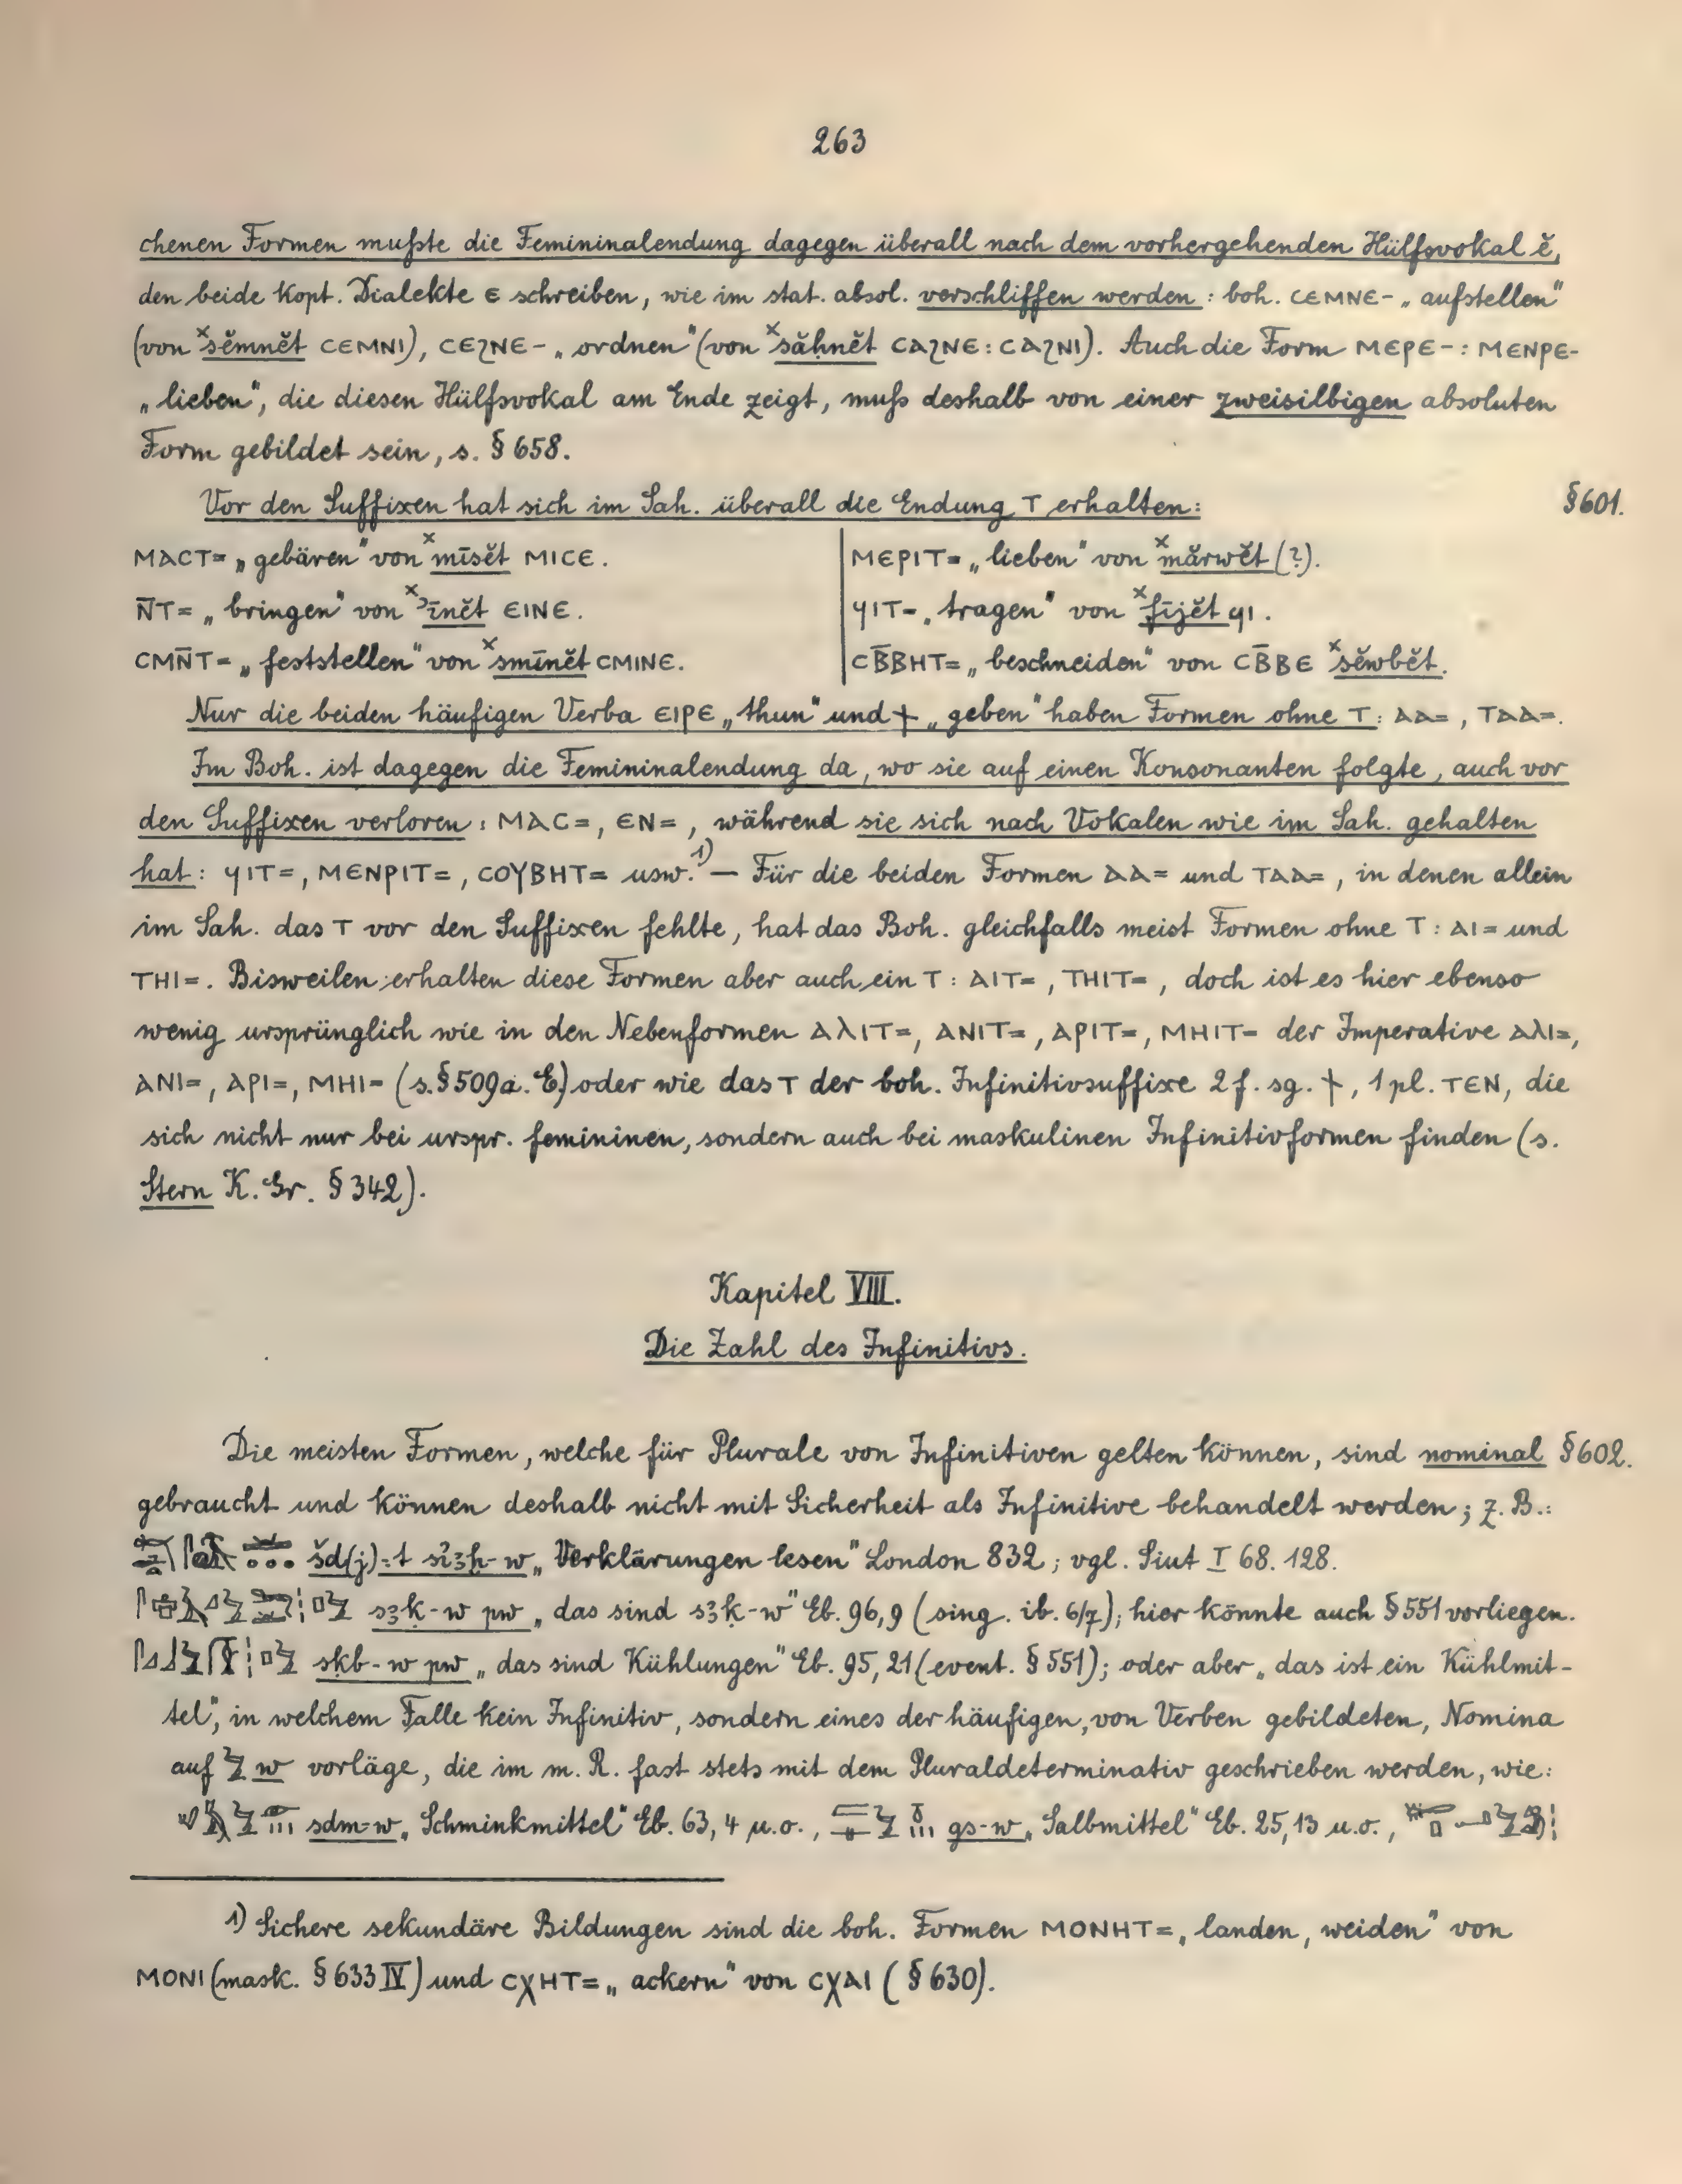 263
chenen Formen mußte die Femininalendung dagegen überall nach dem vorhergehenden Hülfsvokal ĕ,
den beide kopt. Dialekte ⲉ schreiben, wie im stat. absol. verschliffen werden : boh. ⲤⲈⲘⲚⲈ- „aufstellen"
(von ˣsĕmnĕt ⲤⲈⲘⲚⲒ), ⲤⲈϨⲚⲈ- „ordnen" (von ˣsăḥnĕt ⲤⲀϨⲚⲈ : ⲤⲀϨⲚⲒ). Auch die Form ⲘⲈⲢⲈ- : ⲘⲈⲚⲢⲈ-
„lieben", die diesen Hülfsvokal am Ende zeigt, muß deshalb von einer zweisilbigen absoluten
Form gebildet sein, s. § 658.
Vor den Suffixen hat sich im Sah. überall die Endung Ⲧ erhalten: §601.
ⲘⲀⲤⲦ= „gebären" von ˣmīsĕt ⲘⲒⲤⲈ. ⲘⲈⲢⲒⲦ= „lieben" von ˣmărwĕt (?).
Ⲛ̄Ⲧ= „bringen" von ˣꜣīnĕt ⲈⲒⲚⲈ. ϤⲒⲦ= „tragen" von ˣfījĕt ϤⲒ.
ⲤⲘⲚ̄Ⲧ= „feststellen" von ˣsmīnĕt ⲤⲘⲒⲚⲈ. ⲤⲂ̄ⲂⲎⲦ= „beschneiden" von ⲤⲂ̄ⲂⲈ ˣsĕwbĕt.
Nur die beiden häufigen Verba ⲈⲒⲢⲈ „thun" und ϯ „geben" haben Formen ohne Ⲧ: ⲀⲀ=, ⲦⲀⲀ=.
Im Boh. ist dagegen die Femininalendung da, wo sie auf einen Konsonanten folgte, auch vor
den Suffixen verloren: ⲘⲀⲤ=, ⲈⲚ=, während sie sich nach Vokalen wie im Sah. gehalten
hat: ϤⲒⲦ=, ⲘⲈⲚⲢⲒⲦ=, ⲤⲞⲨⲂⲎⲦ= usw.¹⁾ — Für die beiden Formen ⲀⲀ= und ⲦⲀⲀ=, in denen allein
im Sah. das Ⲧ vor den Suffixen fehlte, hat das Boh. gleichfalls meist Formen ohne Ⲧ: ⲀⲒ= und
ⲦⲎⲒ=. Bisweilen erhalten diese Formen aber auch ein Ⲧ: ⲀⲒⲦ=, ⲦⲎⲒⲦ=, doch ist es hier ebenso
wenig ursprünglich wie in den Nebenformen ⲀⲖⲒⲦ=, ⲀⲚⲒⲦ=, ⲀⲢⲒⲦ=, ⲘⲎⲒⲦ= der Imperative ⲀⲖⲒ=,
ⲀⲚⲒ=, ⲀⲢⲒ=, ⲘⲎⲒ= (s. § 509 a. E) oder wie das Ⲧ der boh. Infinitivsuffixe 2 f. sg. ϯ, 1 pl. ⲦⲈⲚ, die
sich nicht nur bei urspr. femininen, sondern auch bei maskulinen Infinitivformen finden (s.
Stern K. Gr. § 342).
Kapitel VIII.
Die Zahl des Infinitivs.
Die meisten Formen, welche für Plurale von Infinitiven gelten können, sind nominal §602.
gebraucht und können deshalb nicht mit Sicherheit als Infinitive behandelt werden; z. B.:
šd(j)=t siꜣḫ-w „Verklärungen lesen" London 832; vgl. Siut I 68. 128.
sꜣḳ-w pw „das sind sꜣḳ-w" Eb. 96,9 (sing. ib. 6/7); hier könnte auch § 551 vorliegen.
skb-w pw „das sind Kühlungen" Eb. 95,21 (event. § 551); oder aber „das ist ein Kühlmit-
tel", in welchem Falle kein Infinitiv, sondern eines der häufigen, von Verben gebildeten, Nomina
auf w vorläge, die im m. R. fast stets mit dem Pluraldeterminativ geschrieben werden, wie:
sdm-w „Schminkmittel" Eb. 63,4 u.o., gs-w „Salbmittel" Eb. 25,13 u.o.,
1) Sichere sekundäre Bildungen sind die boh. Formen ⲘⲞⲚⲎⲦ= „landen, weiden" von
ⲘⲞⲚⲒ (mask. § 633 IV) und ⲤⲬⲎⲦ= „ackern" von ⲤⲬⲀⲒ (§ 630).